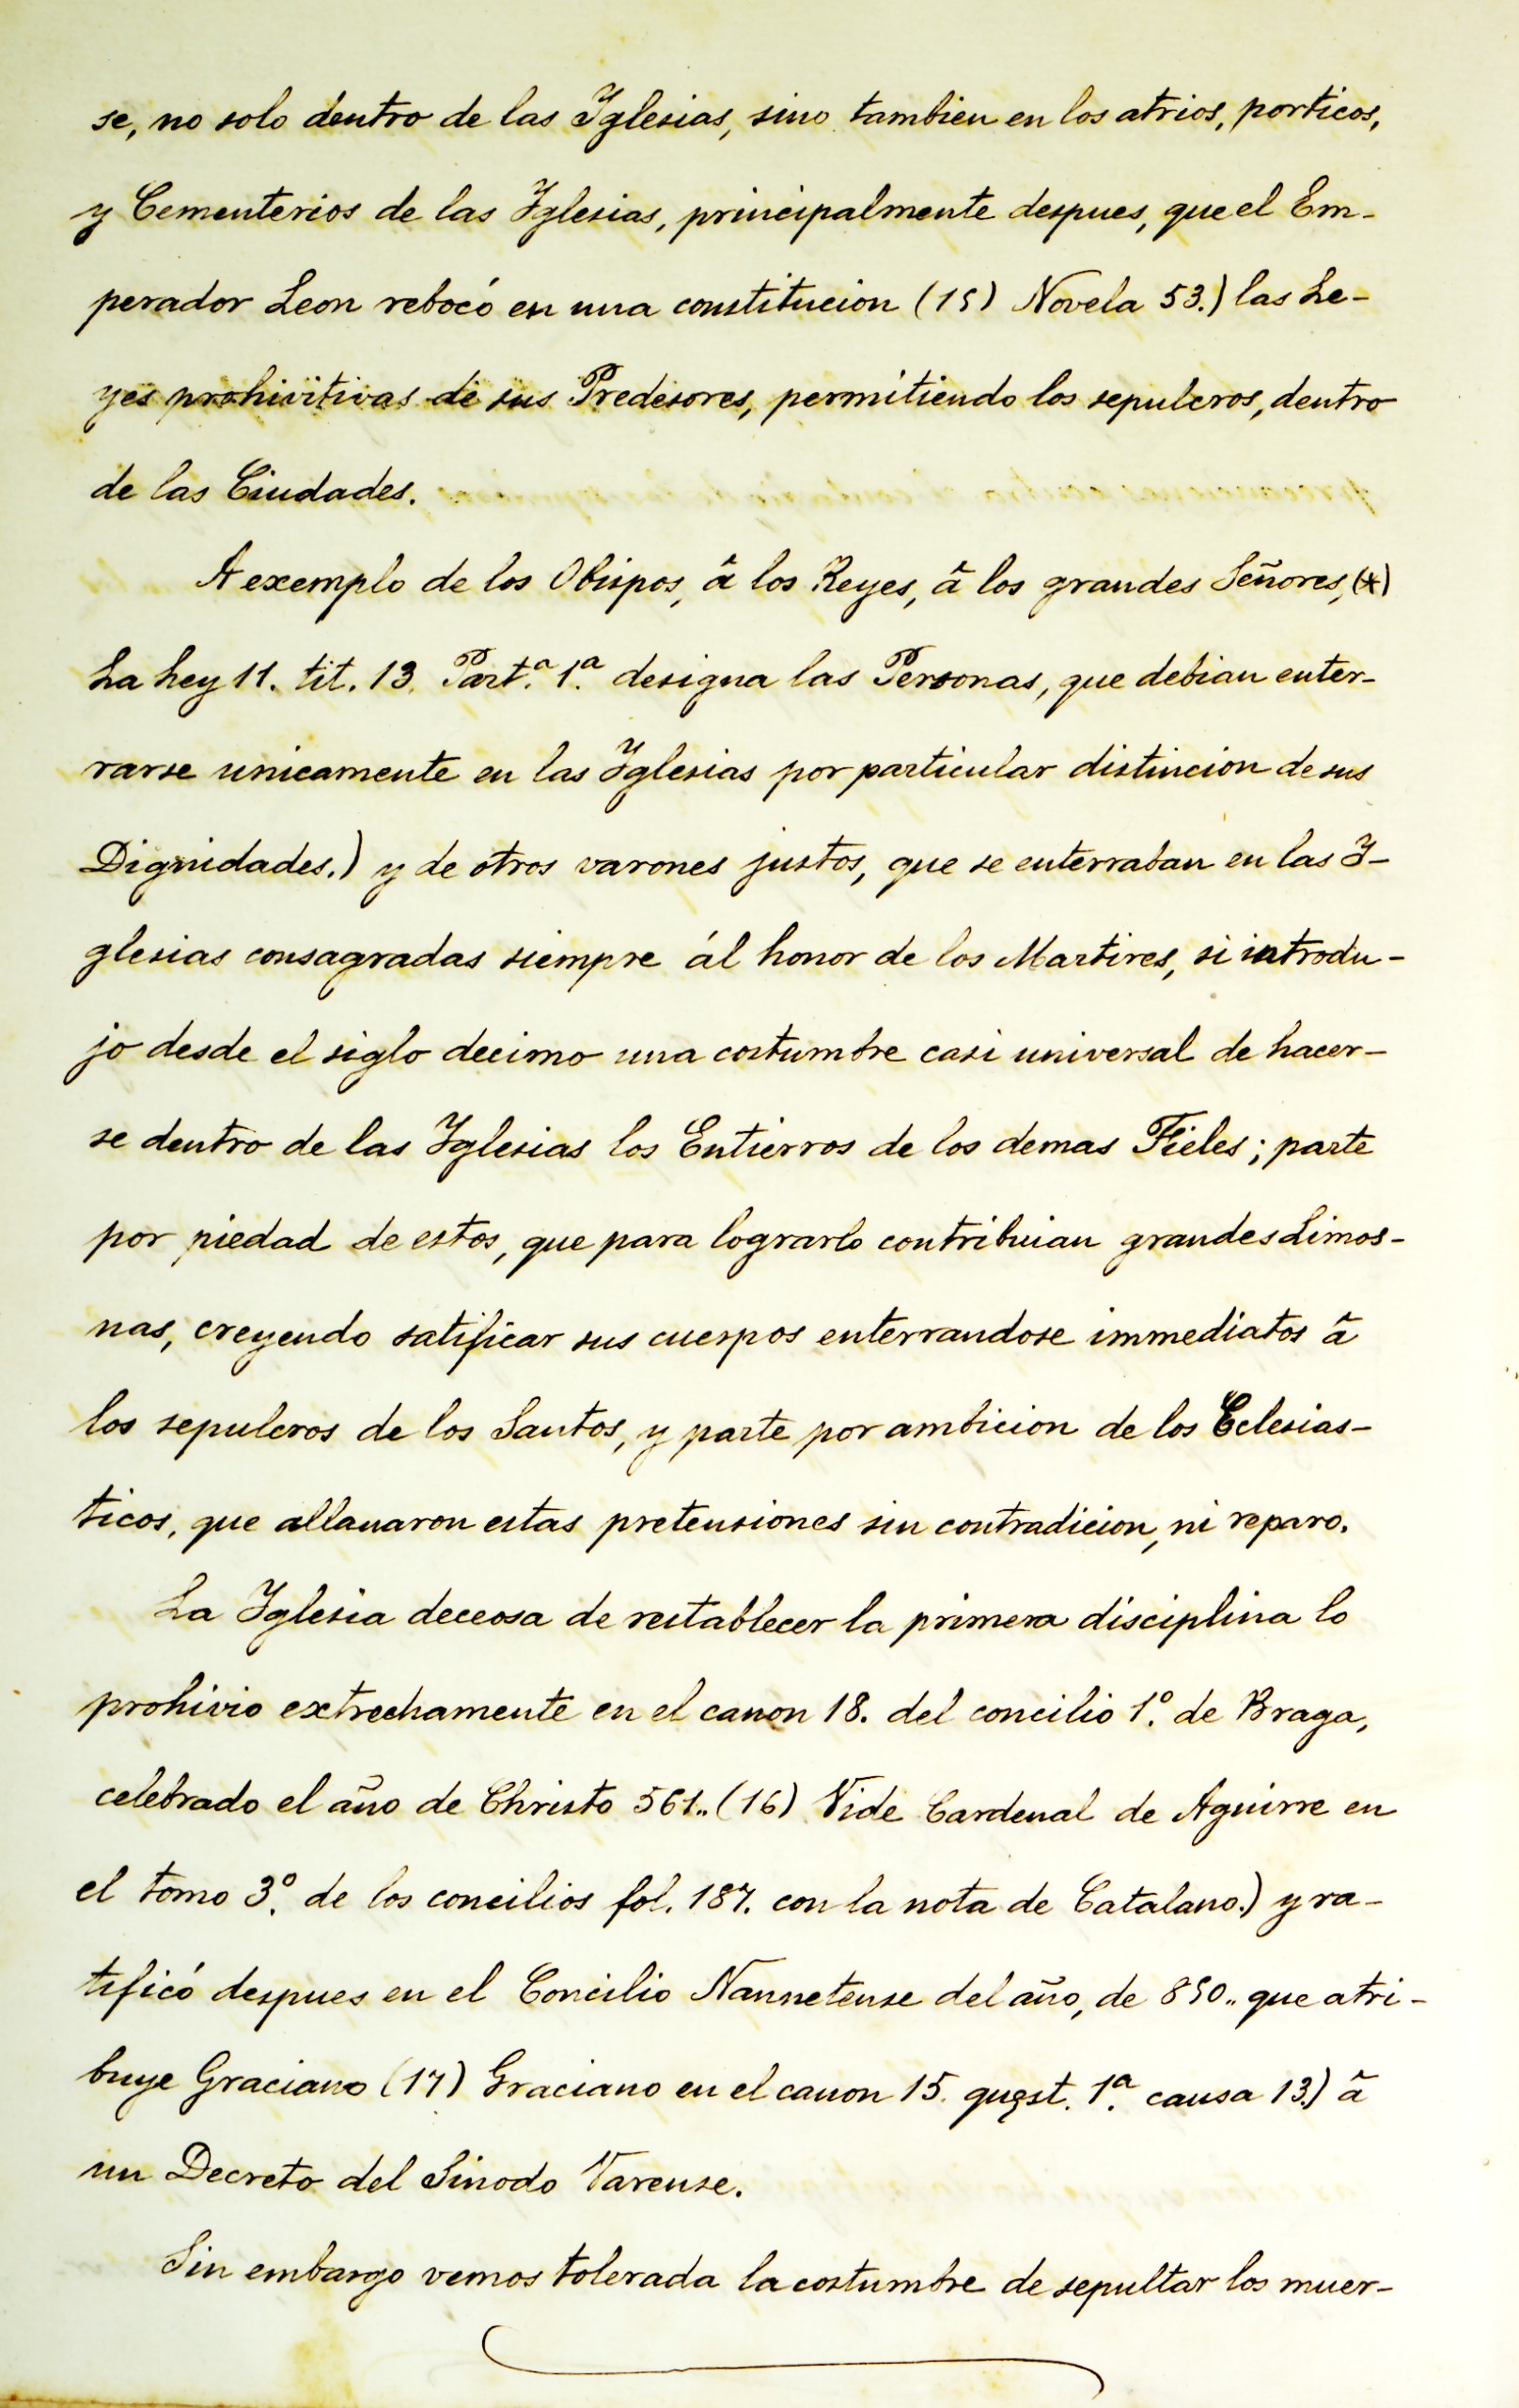 se, no solo dentro de las Yglesias, sino tambien en los atrios, porticos,
y Cementerios de las Yglesias, principalmente despues, que el Em-
perador Leon rebocó en una constitucion (15) Novela 53.) las Le-
yes prohivitivas de sus Predesores, permitiendo los sepulcros, dentro
de las Ciudades.
A exemplo de los Obispos, â los Reyes, â los grandes Señores, (*)
La Ley 11. tit. 13. Part.ª 1.ª designa las Personas, que debian enter-
rarse unicamente en las Yglesias por particular distincion de sus
Dignidades.) y de otros varones justos, que se enterraban en las Y-
glesias consagradas siempre ál honor de los Martires, si introdu-
jo desde el siglo decimo una costumbre casi universal de hacer-
se dentro de las Yglesias los Entierros de los demas Fieles; parte
por piedad de estos, que para lograrlo contribuian grandes Limos-
nas, creyendo satificar sus cuerpos enterrandose immediatos â
los sepulcros de los Santos, y parte por ambicion de los Eclesias-
ticos, que allanaron estas pretensiones sin contradicion, ni reparo.
La Yglesia deceosa de restablecer la primera disciplina lo
prohivio extrechamente en el canon 18. del concilio 1.º de Braga,
celebrado el año de Christo 561.. (16) Vide Cardenal de Aguirre en
el tomo 3.º de los concilios fol. 187. con la nota de Catalano.) y ra-
tificó despues en el Concilio Nannetense del año, de 850.. que atri-
buye Graciano (17) Graciano en el canon 15. quęst. 1.ª causa 13.) â
un Decreto del Sinodo Varense.
Sin embargo vemos tolerada la costumbre de sepultar los muer-